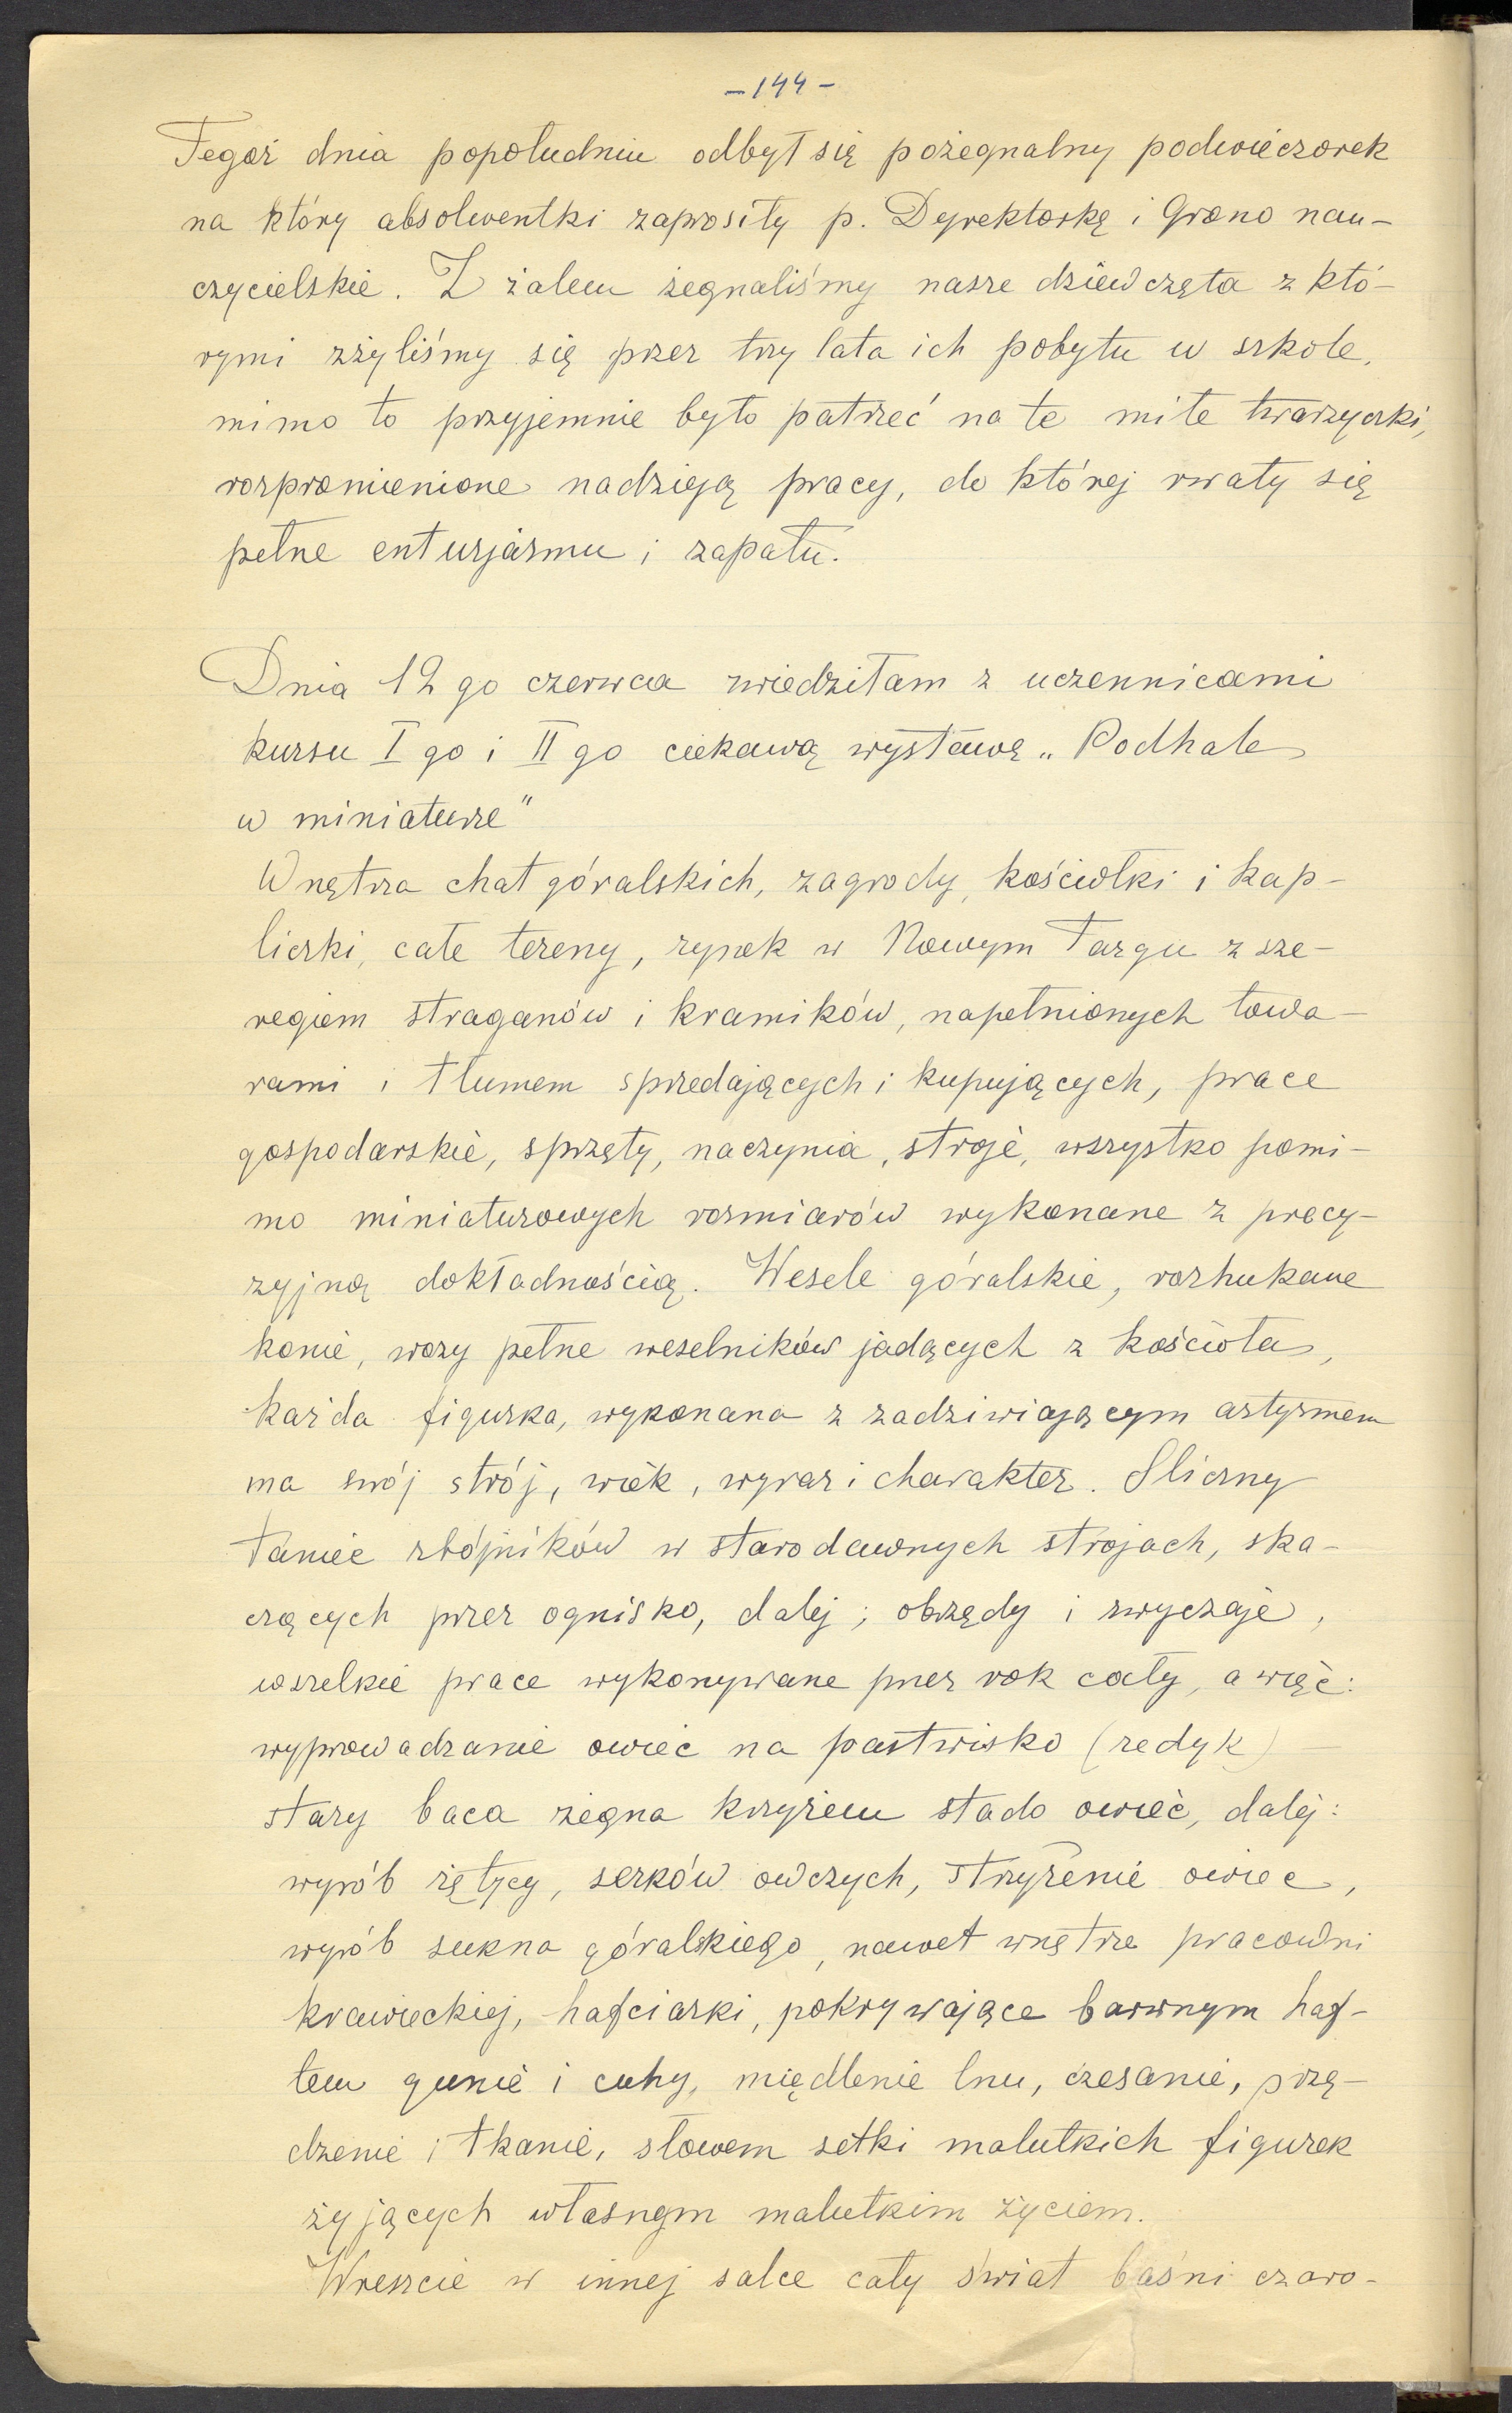 - 144 -
Tegoż dnia popołudniu odbył się pożegnalny podwieczorek
na który absolwentki zaprosiły p. Dyrektorkę i Grono nau-
czycielskie. Z żalem żegnaliśmy nasze dziewczęta z któ-
rymi zżyliśmy się przez trzy lata ich pobytu w szkole,
mimo to przyjemnie było patrzeć na te miłe twarzyczki,
rozpromienione nadzieją pracy, do której rwały się
pełne entuzjazmu i zapału.
Dnia 12 go czerwca zwiedziłam z uczennicami
kursu I go i II go ciekawą wystawę „Podhale
w miniaturze"
Wnętrza chat góralskich, zagrody, kościółki i kap-
liczki, całe tereny, rynek w Nowym Targu z sze-
regiem straganów i kramików, napełnionych towa-
rami i tłumem sprzedających i kupujących, prace
gospodarskie, sprzęty, naczynia, stroje, wszystko pomi-
mo miniaturowych rozmiarów wykonane z precy-
zyjną dokładnością. Wesele góralskie, rozhukane
konie, wozy pełne weselników jadących z kościoła,
każda figurka, wykonana z zadziwiającym artyzmem
ma swój strój, wiek, wyraz i charakter. Śliczny
taniec zbójników w starodawnych strojach, ska-
czących przez ognisko, dalej; obrzędy i zwyczaje,
wszelkie prace wykonywane przez rok cały, a więc:
wyprowadzanie owiec na pastwisko (redyk)
stary baca żegna krzyżem stado owiec, dalej:
wyrób żętycy, serków owczych, strzyżenie owiec,
wyrób sukna góralskiego, nawet wnętrze pracowni
krawieckiej, hafciarki, pokrywające barwnym haf-
tem gunie i cuhy, międlenie lnu, czesanie, przę-
dzenie i tkanie, słowem setki malutkich figurek
żyjących własnym malutkim życiem.
Wreszcie w innej salce cały świat baśni czaro-